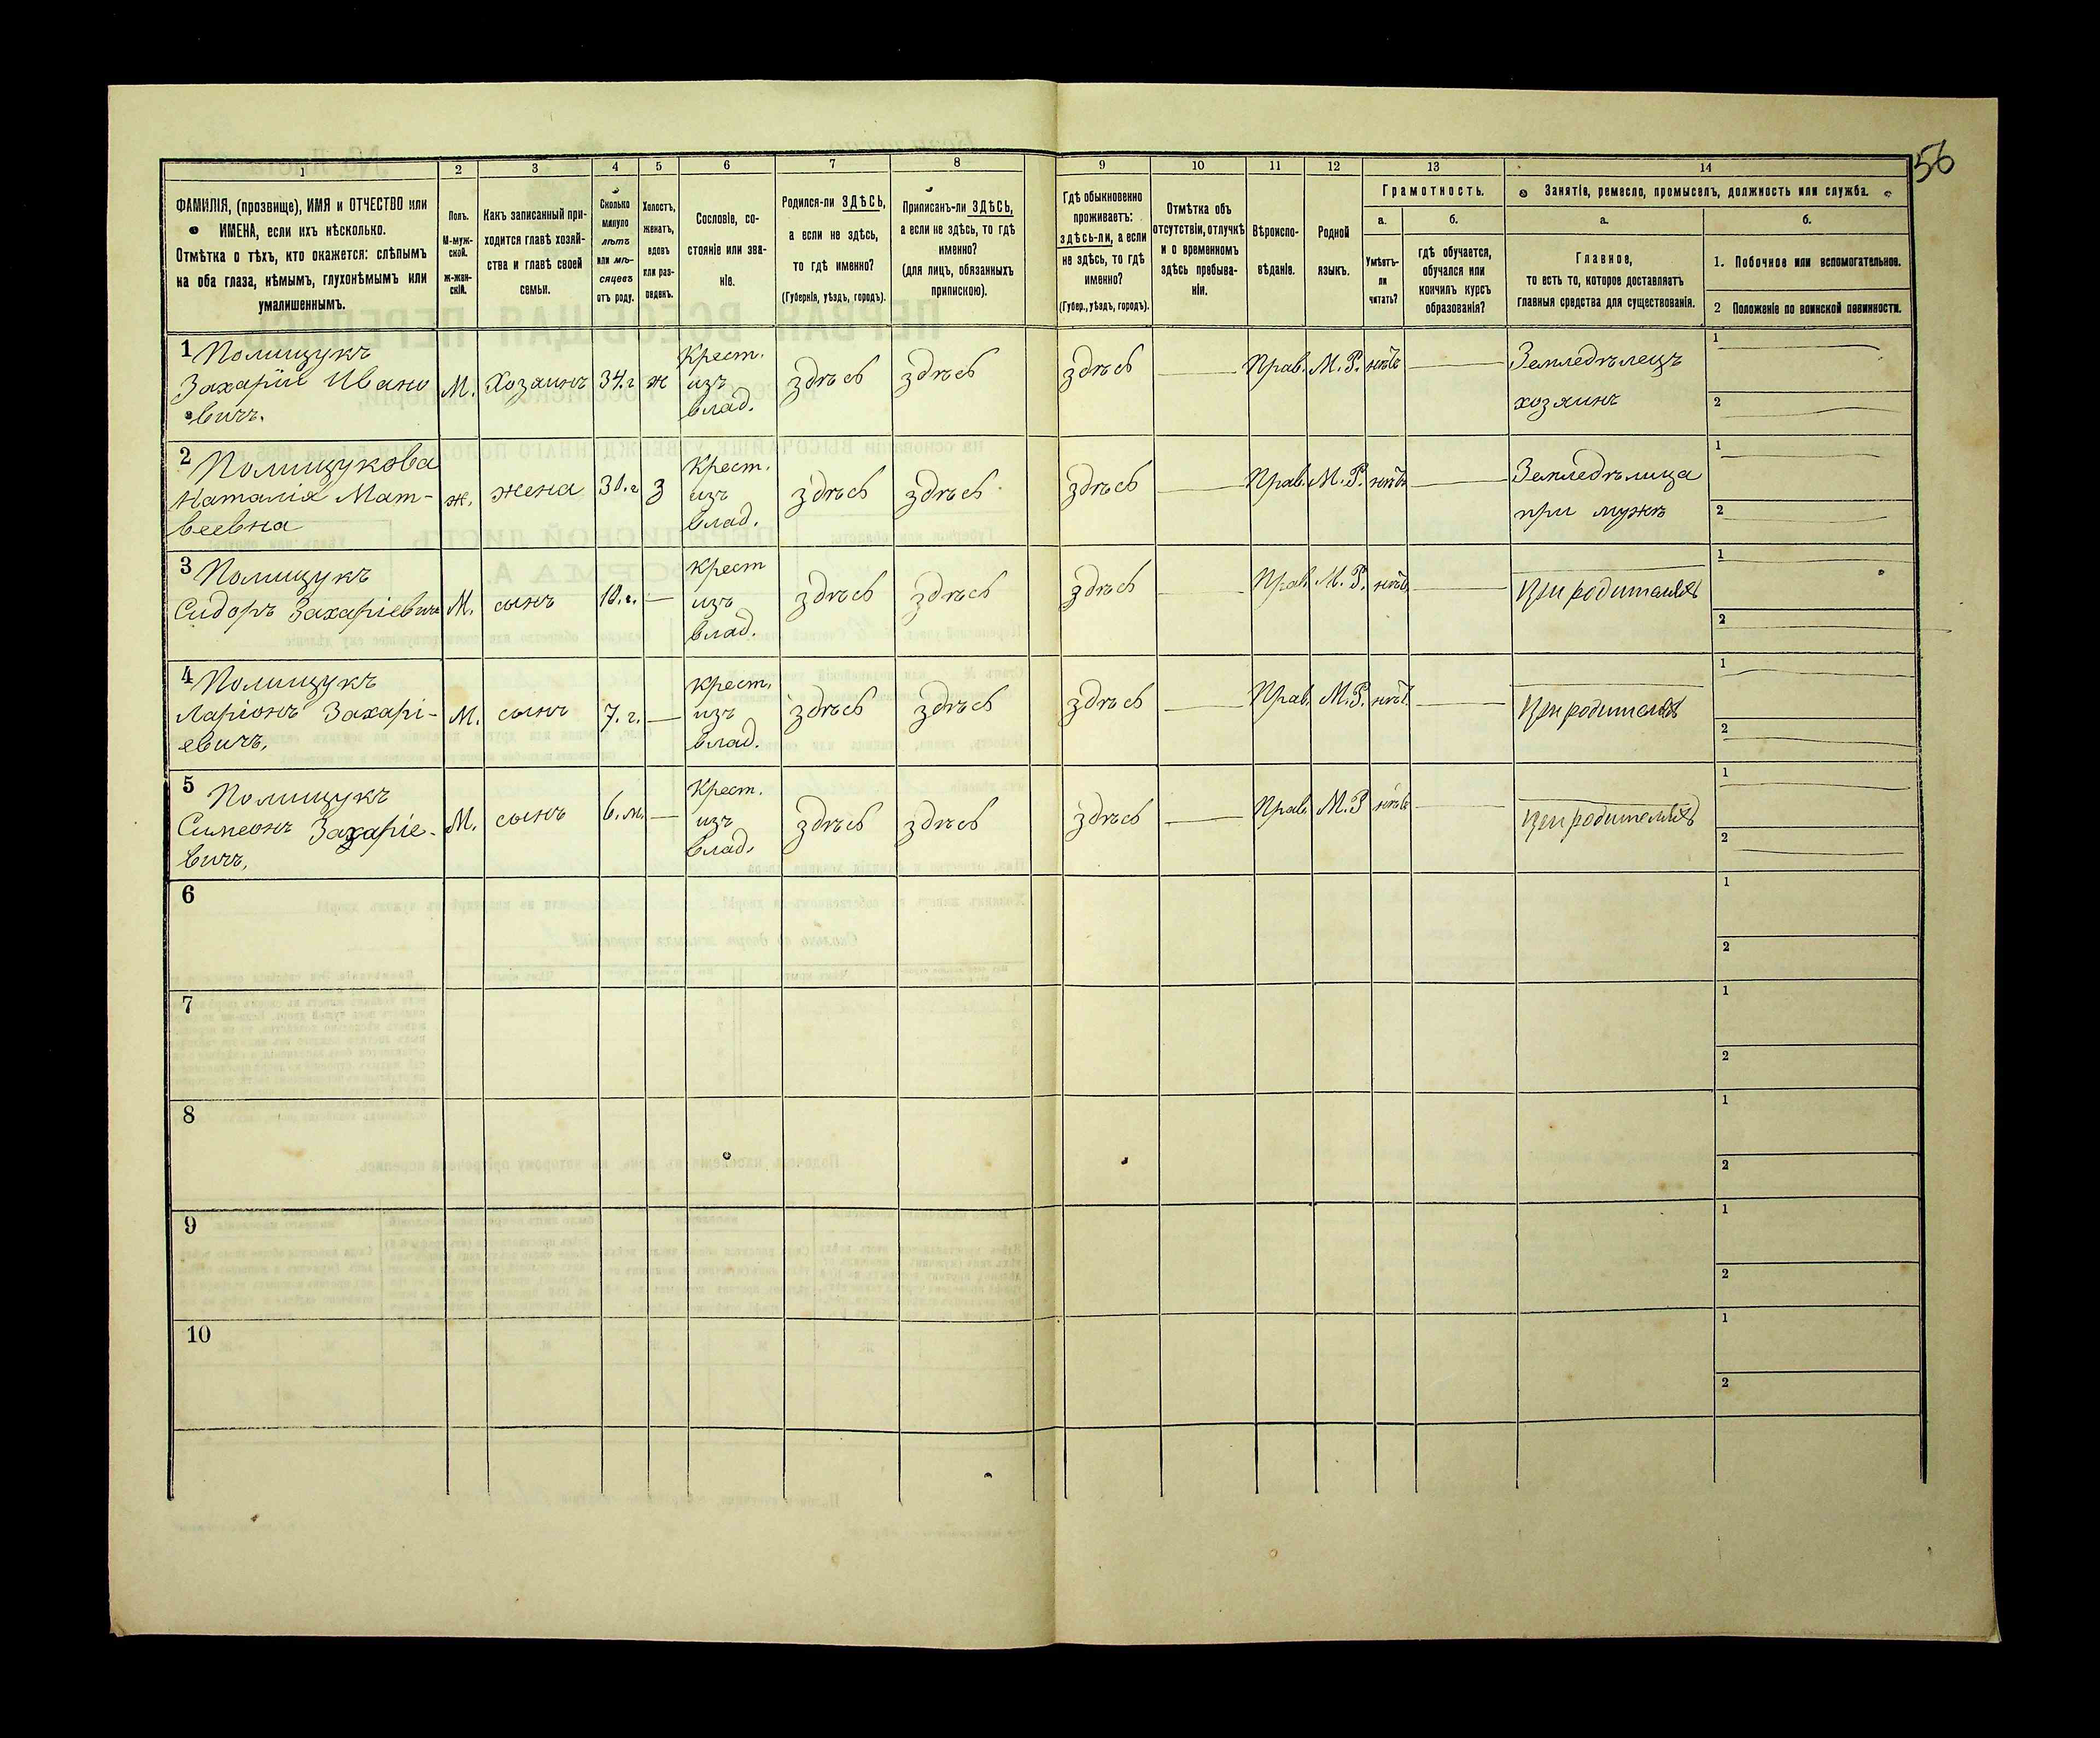 56
1 2 3 4 5 6 7 8 9 10 11 12 13 14
ФАМИЛІЯ, (прозвище), ИМЯ и ОТЧЕСТВО или
ИМЕНА, если ихъ нѣсколько.
Отмѣтка о тѣхъ, кто окажется: слѣпымъ
на оба глаза, нѣмымъ, глухонѣмымъ или
умалишеннымъ.
Полъ.
М-муж-
ской.
ж-жен-
скій.
Какъ записанный при-
ходится главѣ хозяй-
ства и главѣ своей
семьи.
Сколько
минуло
лѣтъ
или мѣ-
сяцевъ
отъ роду.
Холостъ,
женатъ,
вдовъ
или раз-
веденъ.
Сословіе, со-
стояніе или зва-
ніе.
Родился-ли ЗДѢСЬ,
а если не здѣсь,
то гдѣ именно?
(Губернія, уѣздъ, городъ).
Приписанъ-ли ЗДѢСЬ,
а если не здѣсь, то гдѣ
именно?
(для лицъ, обязанныхъ
припискою).
Гдѣ обыкновенно
проживаетъ:
здѣсь-ли, а если
не здѣсь, то гдѣ
именно?
(Губер., уѣздъ, городъ).
Отмѣтка объ
отсутствіи, отлучкѣ
и о временномъ
здѣсь пребыва-
ніи.
Вѣроиспо-
вѣданіе.
Родной
языкъ.
Грамотность.
а.
Умѣетъ-
ли
читать?
б.
гдѣ обучается,
обучался или
кончилъ курсъ
образованія?
Занятіе, ремесло, промыселъ, должность или служба.
а.
Главное,
то есть то, которое доставляетъ
главныя средства для существованія.
б.
1. Побочное или вспомогательное.
2 Положеніе по воинской повинности.
1 Полищукъ
Захарій Ивано
вичъ.
М.
Хозяинъ
34.г
ж
Крест.
изъ
влад.
здѣсь
здѣсь
здѣсь
Прав.
М. Р.
нѣтъ
Земледѣлецъ
хозяинъ
1
2
2 Полищукова
Наталія Мат-
веевна
ж.
жена
з
Крест.
изъ
влад.
здѣсь
здѣсь
здѣсь
Прав.
М. Р.
нѣтъ
Земледѣлица
при мужѣ
1
2
3 Полищукъ
Сидоръ Захаріевичъ
М.
сынъ
10.г.
Крест
изъ
влад.
здѣсь
здѣсь
здѣсь
Прав.
М. Р.
нѣтъ
При родителяхъ
1
2
4 Полищукъ
Ларіонъ Захарі-
евичъ.
М.
сынъ
7.г.
крест.
изъ
влад.
здѣсь
здѣсь
здѣсь
Прав.
М. Р.
нѣтъ
При родителяхъ
1
2
5 Полищукъ
Симеонъ Захаріе-
вичъ.
М.
сынъ
6.м.
Крест.
изъ
влад.
здѣсь
здѣсь
здѣсь
Прав.
М. Р
нѣтъ
При родителяхъ
1
2
6
1
2
7
1
2
8
1
2
9
1
2
10
1
2